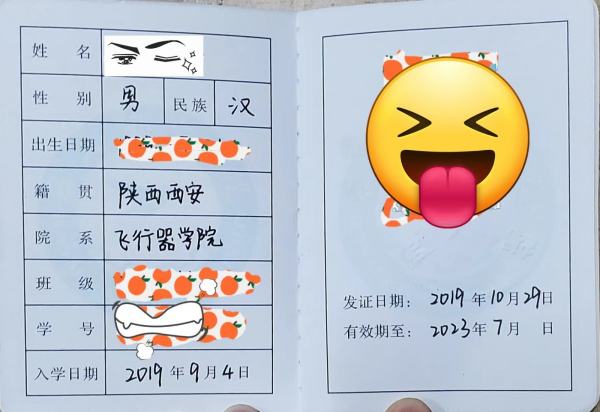 姓 名
性 别 男 民族 汉
出生日期
籍 贯 陕西西安
院 系 飞行器学院
班 级
学 号
入学日期 2019年9月4日
发证日期: 2019年10月29日
有效期至: 2023年7月 日